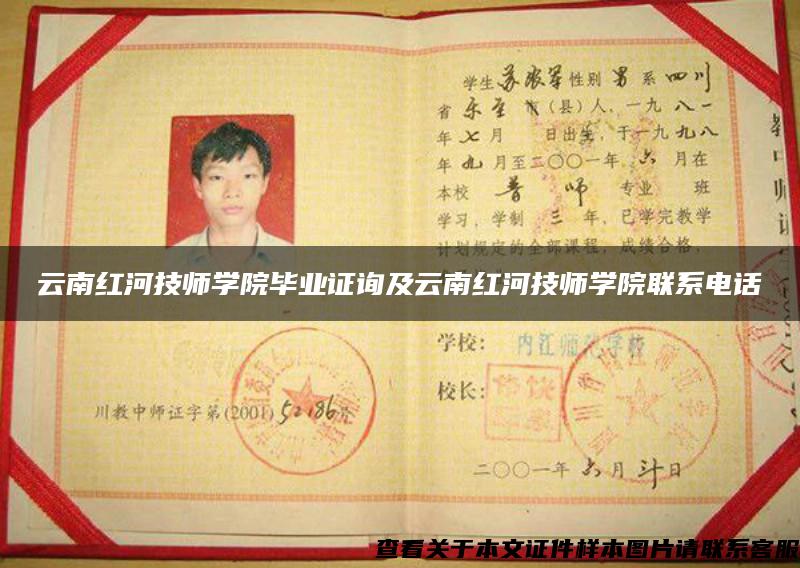 学生 苏 军 性别 男 系 四川
省 乐至 市（县）人，一九 八一
年 七 月 日出生，于一九 九八
年 九 月至二〇〇一年 六 月在
本校 普 师 专业 班
学习，学制 三 年，已学完教学
计划规定的全部课程，成绩合格，
云南红河技师学院毕业证询及云南红河技师学院联系电话
学校： 内江师范学校
校长：
川教中师证字第(2001) 52186号
二〇〇一年 六 月 廿 日
查看关于本文证件样本图片请联系客服